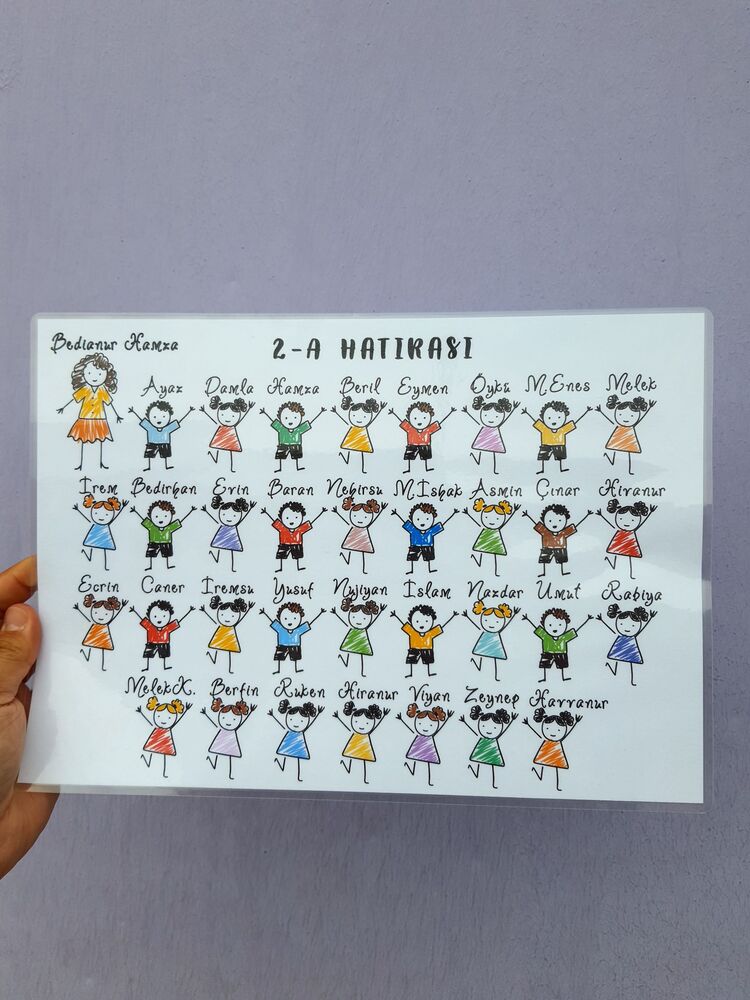 Bedianur Hamza
2-A HATIRASI
Ayaz Damla Hamza Beril Eymen Öykü M Enes Melek
İrem Bedirhan Evin Baran Nehirsu M İshak Asmin Çınar Hiranur
Ecrin Caner İremsu Yusuf Nujiyan İslam Nazdar Umut Rabiya
Melek K. Berfin Ruken Hiranur Viyan Zeynep Havranur